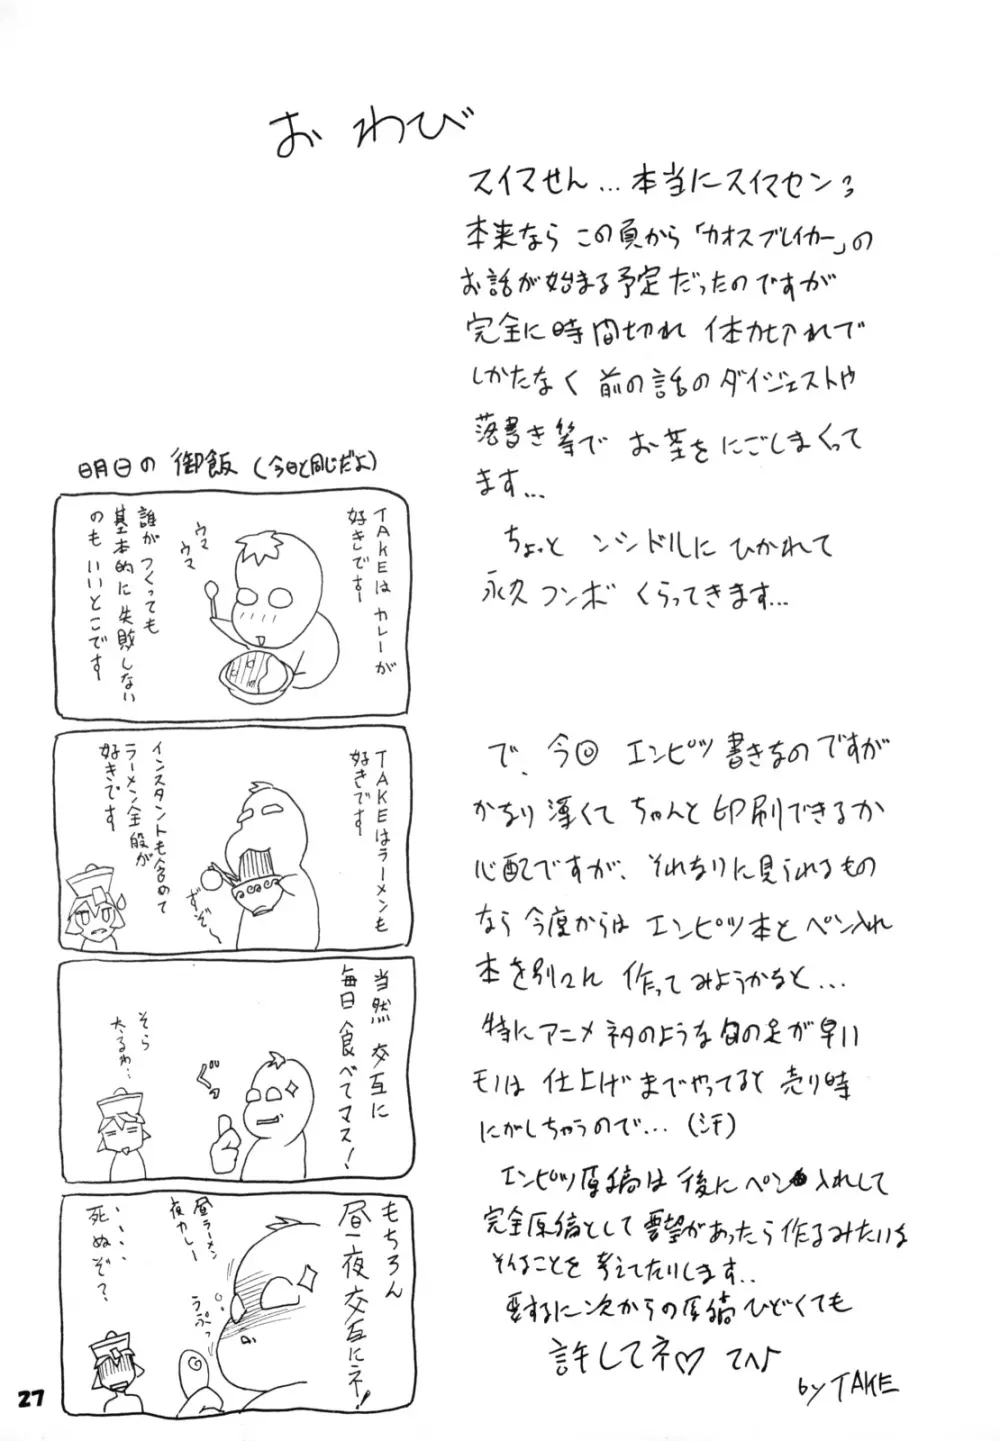 おわび
スイマせん…本当にスイマセン
本来なら この頁から「カオスブレイカー」の
お話が始まる予定だったのですが
完全に時間切れ 体力切れで
しかたなく 前の話のダイジェストや
落書き等で お茶をにごしまくって
ます…
ちょっと ンシドルに ひかれて
永久 コンボ くらってきます…
で、今回 エンピツ書きなのですが
かなり薄くて ちゃんと印刷できるか
心配ですが、それなりに見られるもの
なら 今度からは エンピツ本と ペン入れ
本を別々に 作ってみようかなと…
特にアニメネタのような旬の足が早い
モノは 仕上げまでやってると 売り時
にがしちゃうので…(汗)
エンピツ原稿は 後に ペン入れして
完全原稿として 要望があったら作るみたいな
そんなことを 考えてたりします..
要するに次からの原稿ひどくても
許してネ♡ てへ♪
by TAKE
明日の 御飯 (今日と同じだよ)
TAKEは カレーが
好きです
ウマ
ウマ
誰が つくっても
基本的に 失敗しない
のも いいとこです
TAKEはラーメンも
好きです
ずぞぞ〜
インスタントも含めて
ラーメン全般が
好きです
当然 交互に
毎日 食べてマス!
ぐっ
そら
太るわ…
もちろん
昼一夜交互にネ!
昼ラーメン
夜カレー
うぷっ
・・・・
死ぬぞ?
27